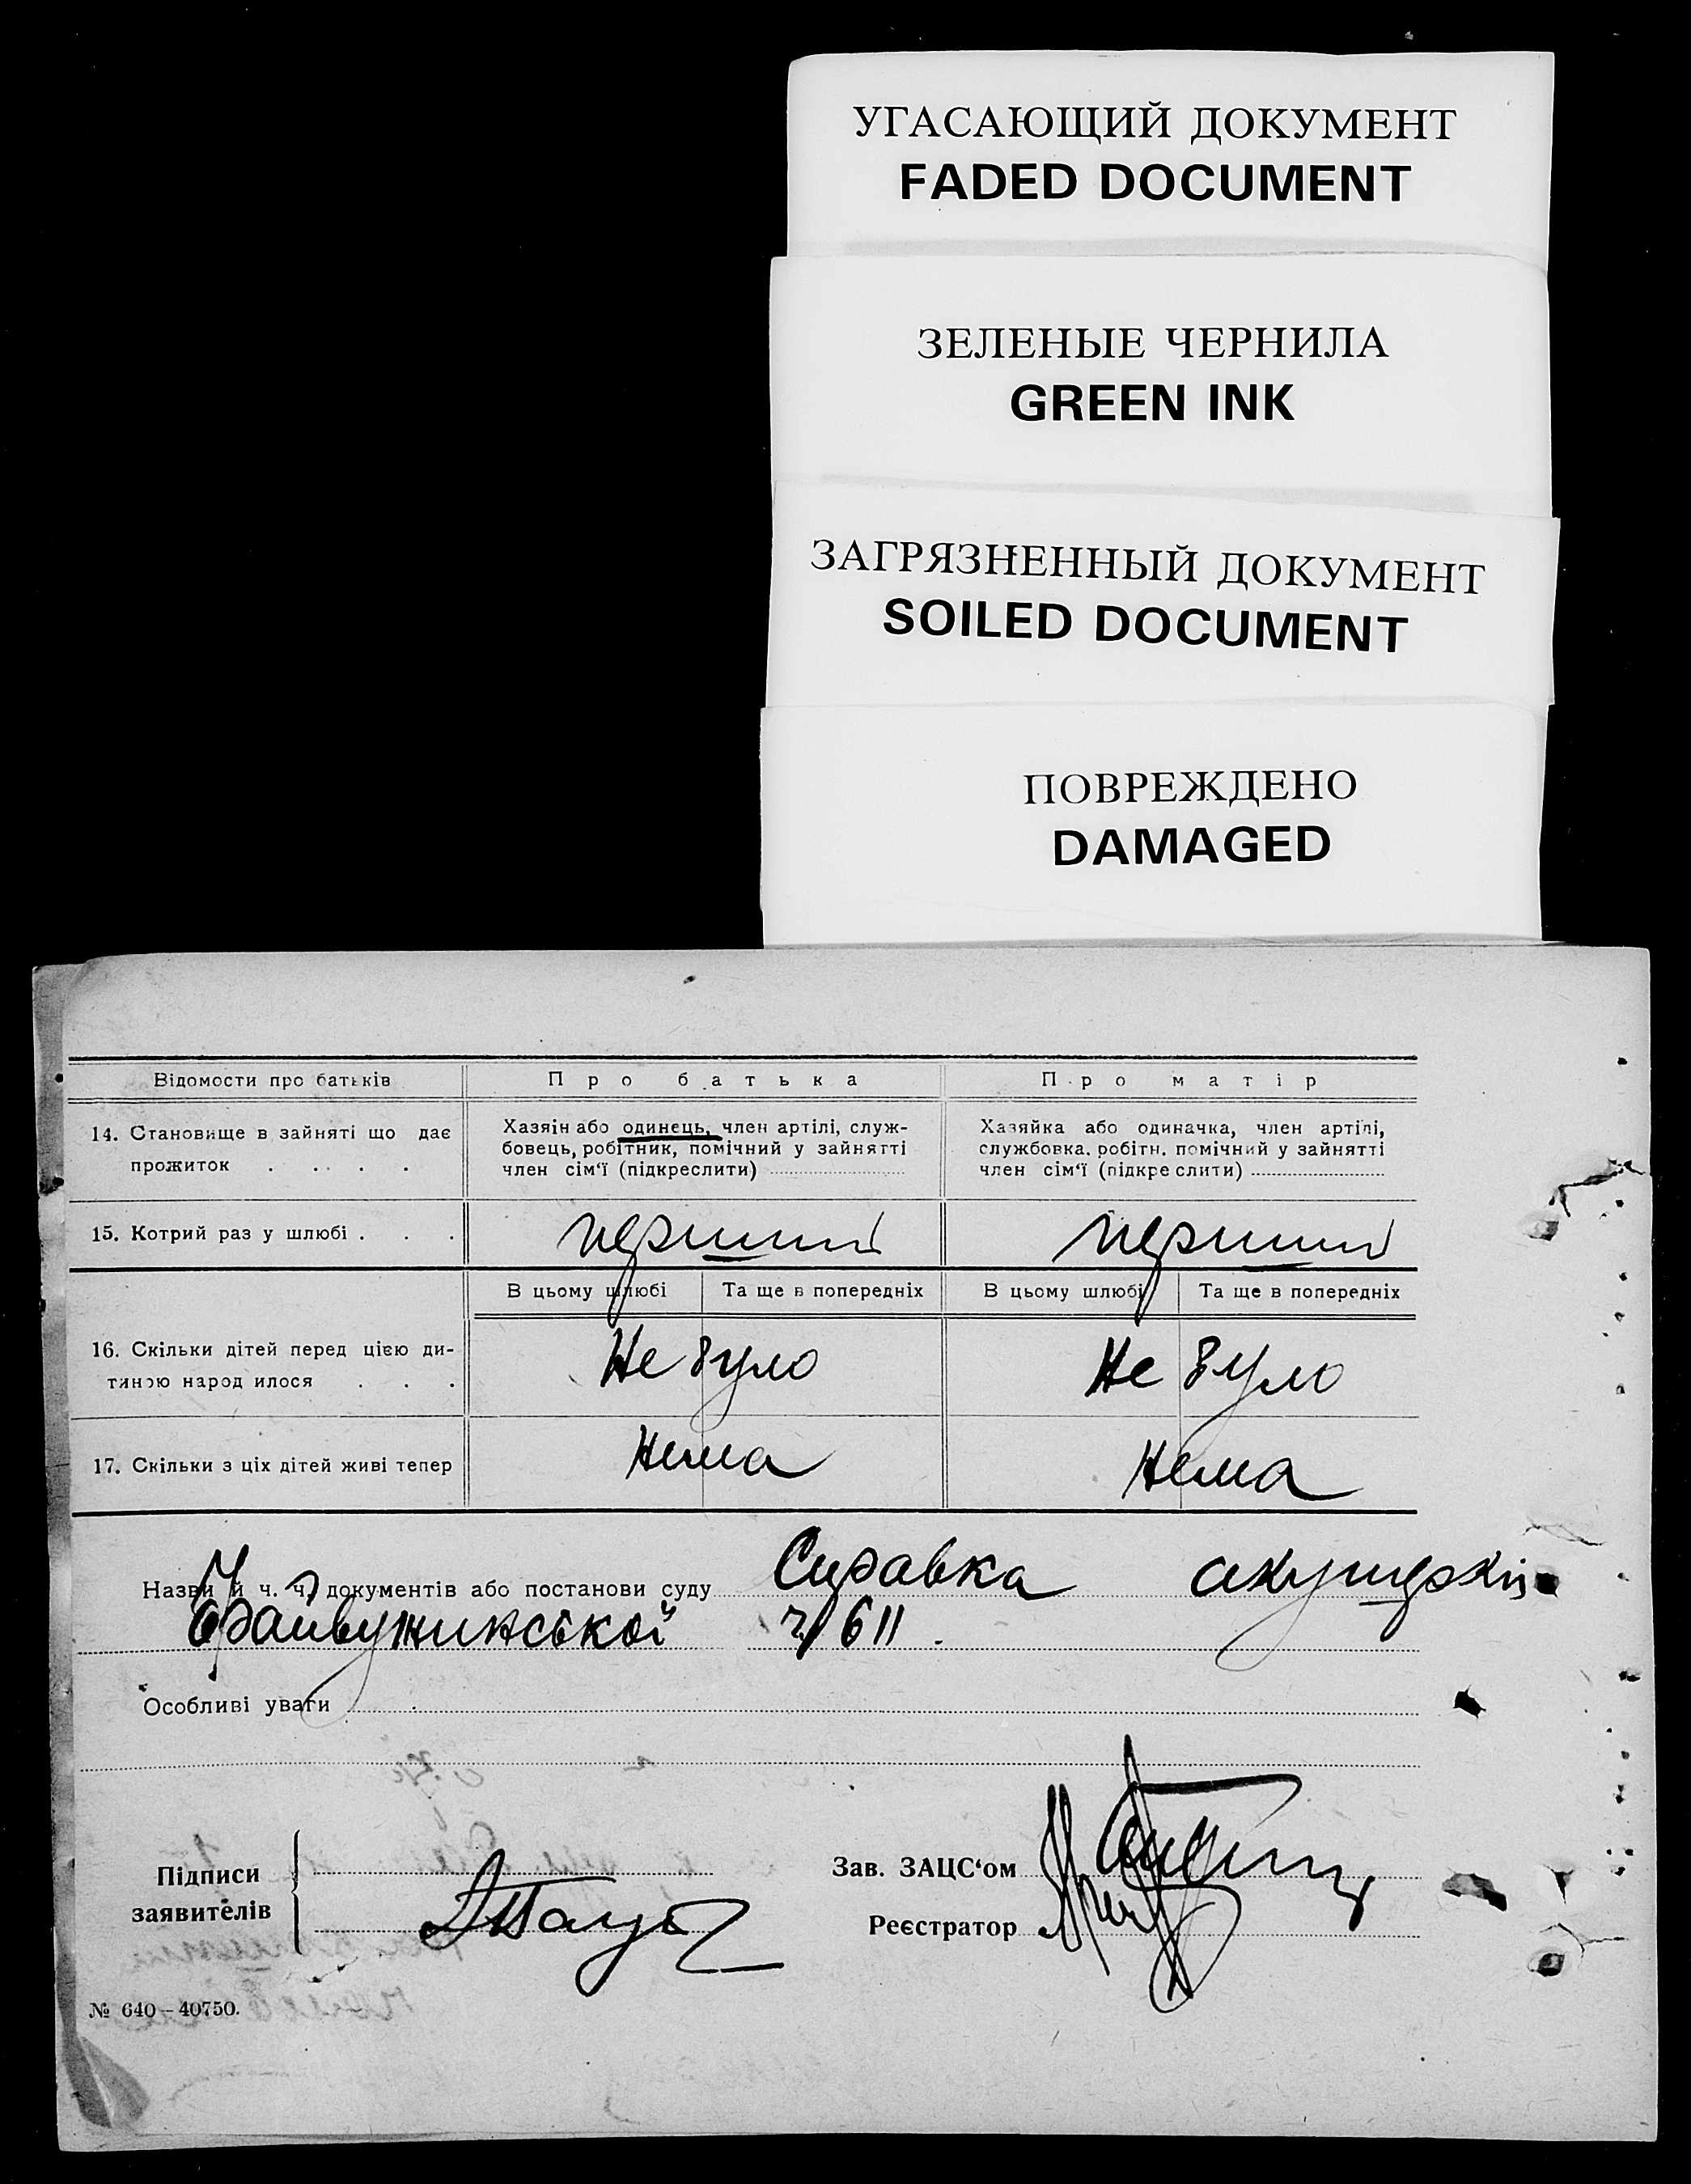 УГАСАЮЩИЙ ДОКУМЕНТ
FADED DOCUMENT
ЗЕЛЕНЫЕ ЧЕРНИЛА
GREEN INK
ЗАГРЯЗНЕННЫЙ ДОКУМЕНТ
SOILED DOCUMENT
ПОВРЕЖДЕНО
DAMAGED
Відомости про батьків
Про батька
Про матір
14. Становище в зайняті що дає
прожиток . . . . .
Хазяін або одинець, член артілі, служ-
бовець, робітник, помічний у зайнятті
член сім'ї (підкреслити)
Хазяйка або одиначка, член артілі,
службовка, робітн. помічний у зайнятті
член сім'ї (підкреслити)
15. Котрий раз у шлюбі . . .
перший
перший
В цьому шлюбі
Та ще в попередніх
В цьому шлюбі
Та ще в попередніх
16. Скільки дітей перед цією ди-
тиною народилося . . .
Не було
Не було
17. Скільки з ціх дітей живі тепер
Нема
Нема
Назви й ч. ч. документів або постанови суду Справка акушерки
ч 611.
Особливі уваги
Підписи
заявителів
Зав. ЗАЦС'ом
Реєстратор
№ 640 – 40750.